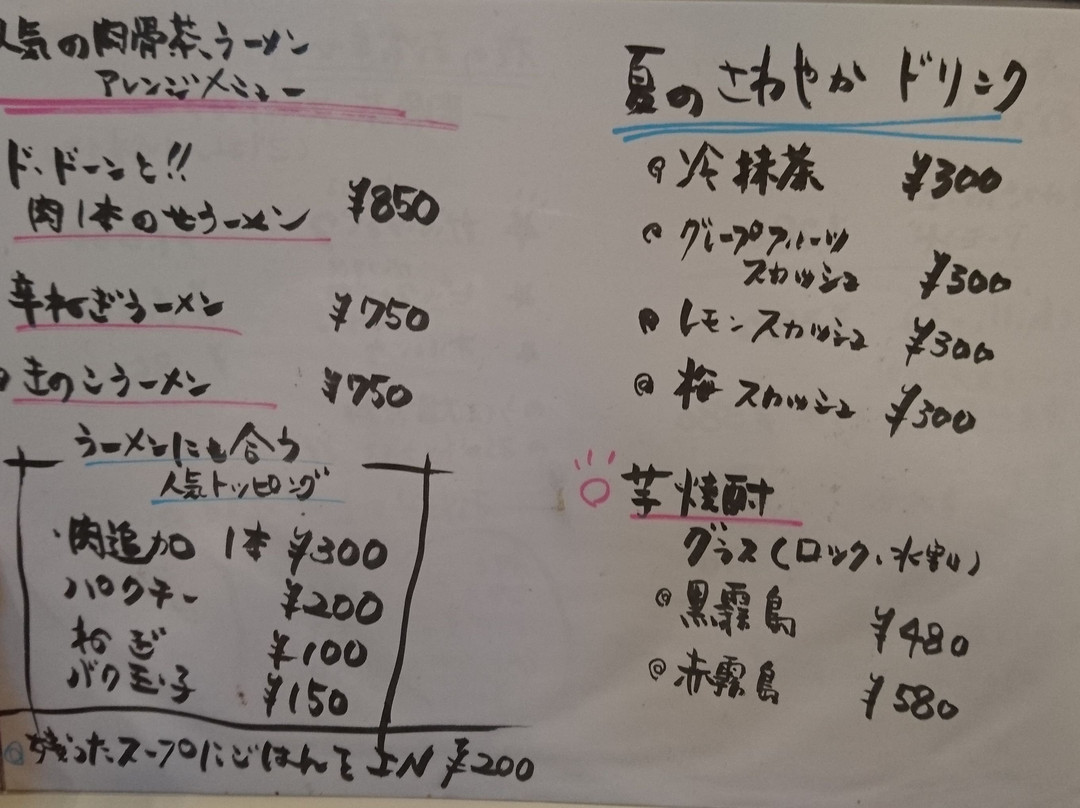 人気の肉骨茶ラーメン
アレンジメニュー
ド、ドーンと!!
肉1本のせラーメン ¥850
辛ねぎラーメン ¥750
きのこラーメン ¥750
ラーメンにも合う
人気トッピング
肉追加 1本 ¥300
パクチー ¥200
ねぎ ¥100
バク玉子 ¥150
残ったスープにごはんを IN ¥200
夏のさわやかドリンク
冷抹茶 ¥300
グレープフルーツ
スカッシュ ¥300
レモンスカッシュ ¥300
梅スカッシュ ¥300
芋焼酎
グラス(ロック、水割り)
黒霧島 ¥480
赤霧島 ¥580